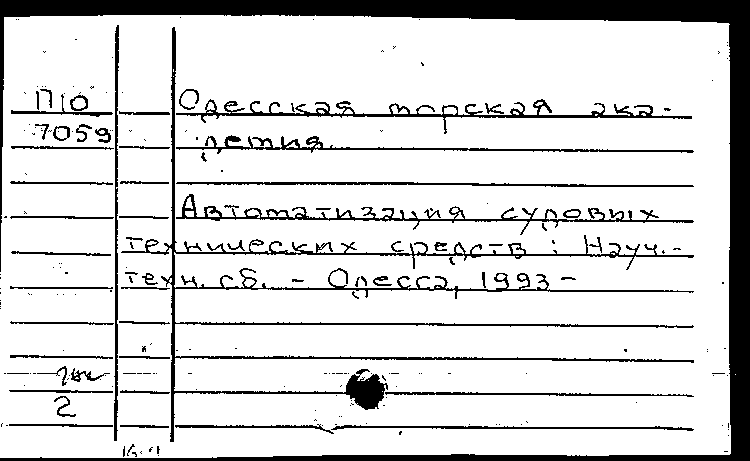 П10 Одесская морская ака-
7059 демия.
Автоматизация судовых
технических средств : Науч.-
техн. сб. - Одесса, 1993-
2